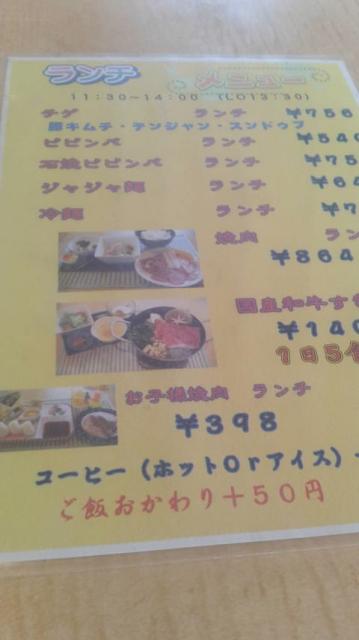 ランチ メニュー
11:30~14:00 (LO13:30)
チゲ ランチ ¥756
豚キムチ・テンジャン・スンドゥブ
ビビンバ ランチ ¥540
石焼ビビンバ ランチ ¥75
ジャジャ麺 ランチ ¥64
冷麺 ランチ ¥7
焼肉 ラン
¥864
国産和牛すき
¥140
1日5食
お子様焼肉 ランチ
¥398
コーヒー(ホットOrアイス)
ご飯おかわり+50円